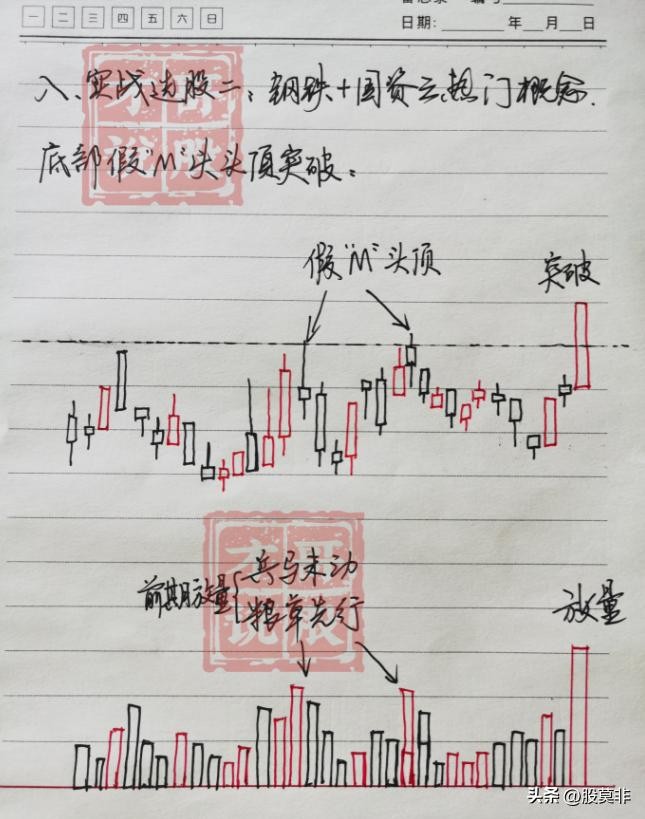 一 二 三 四 五 六 日
日期: 年 月 日
八、实战选股二：钢铁+国资云热门概念.
底部假"M"头头顶突破。
假"M"头顶
突破
兵马未动
前期放量
粮草先行
放量
头条 @股莫非